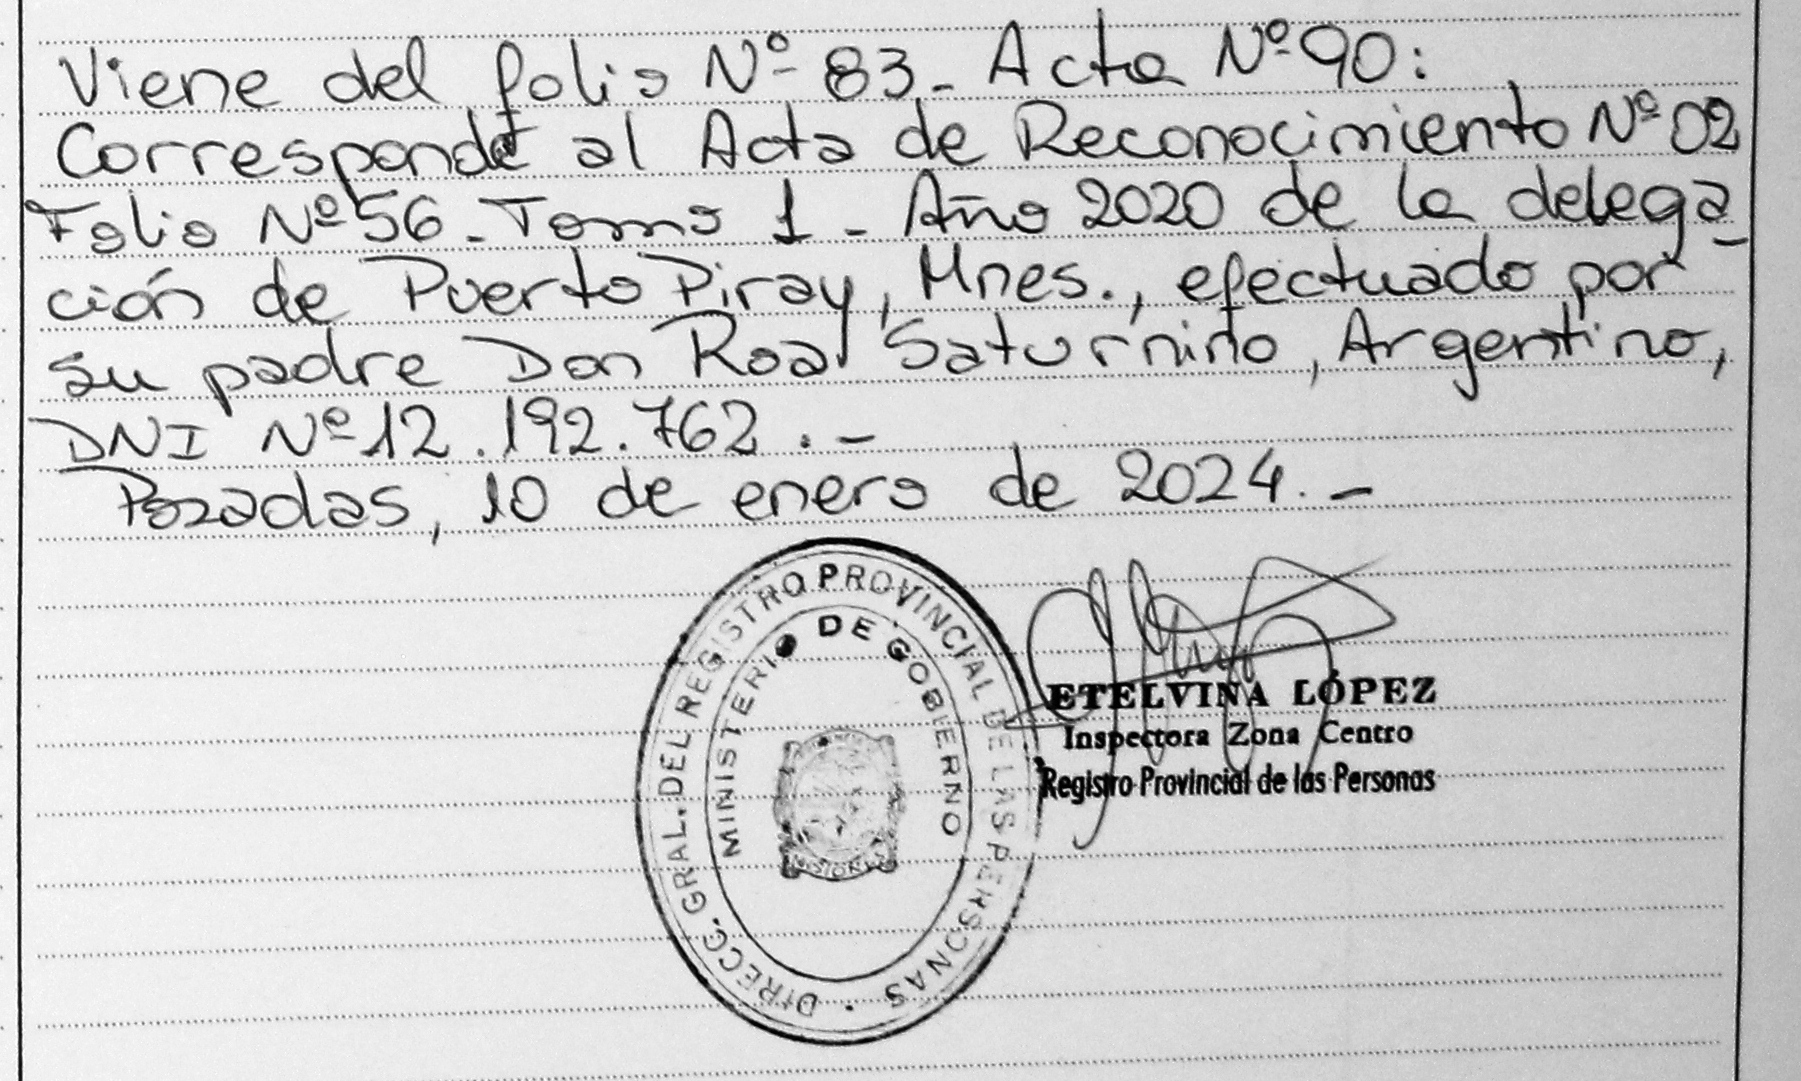 Viene del folio Nº 83_ Acta Nº 90:
Corresponde al Acta de Reconocimiento Nº 02
Folio Nº 56_ Tomo 1 - Año 2020 de la delega_
ción de Puerto Piray, Mnes., efectuado por
su padre Don Roa Saturnino, Argentino,
DNI Nº 12.192.762.-
Posadas, 10 de enero de 2024.-
DIRECC. GRAL. DEL REGISTRO PROVINCIAL DE LAS PERSONAS
MINISTERIO DE GOBIERNO
MISIONES
ETELVINA LÓPEZ
Inspectora Zona Centro
Registro Provincial de las Personas